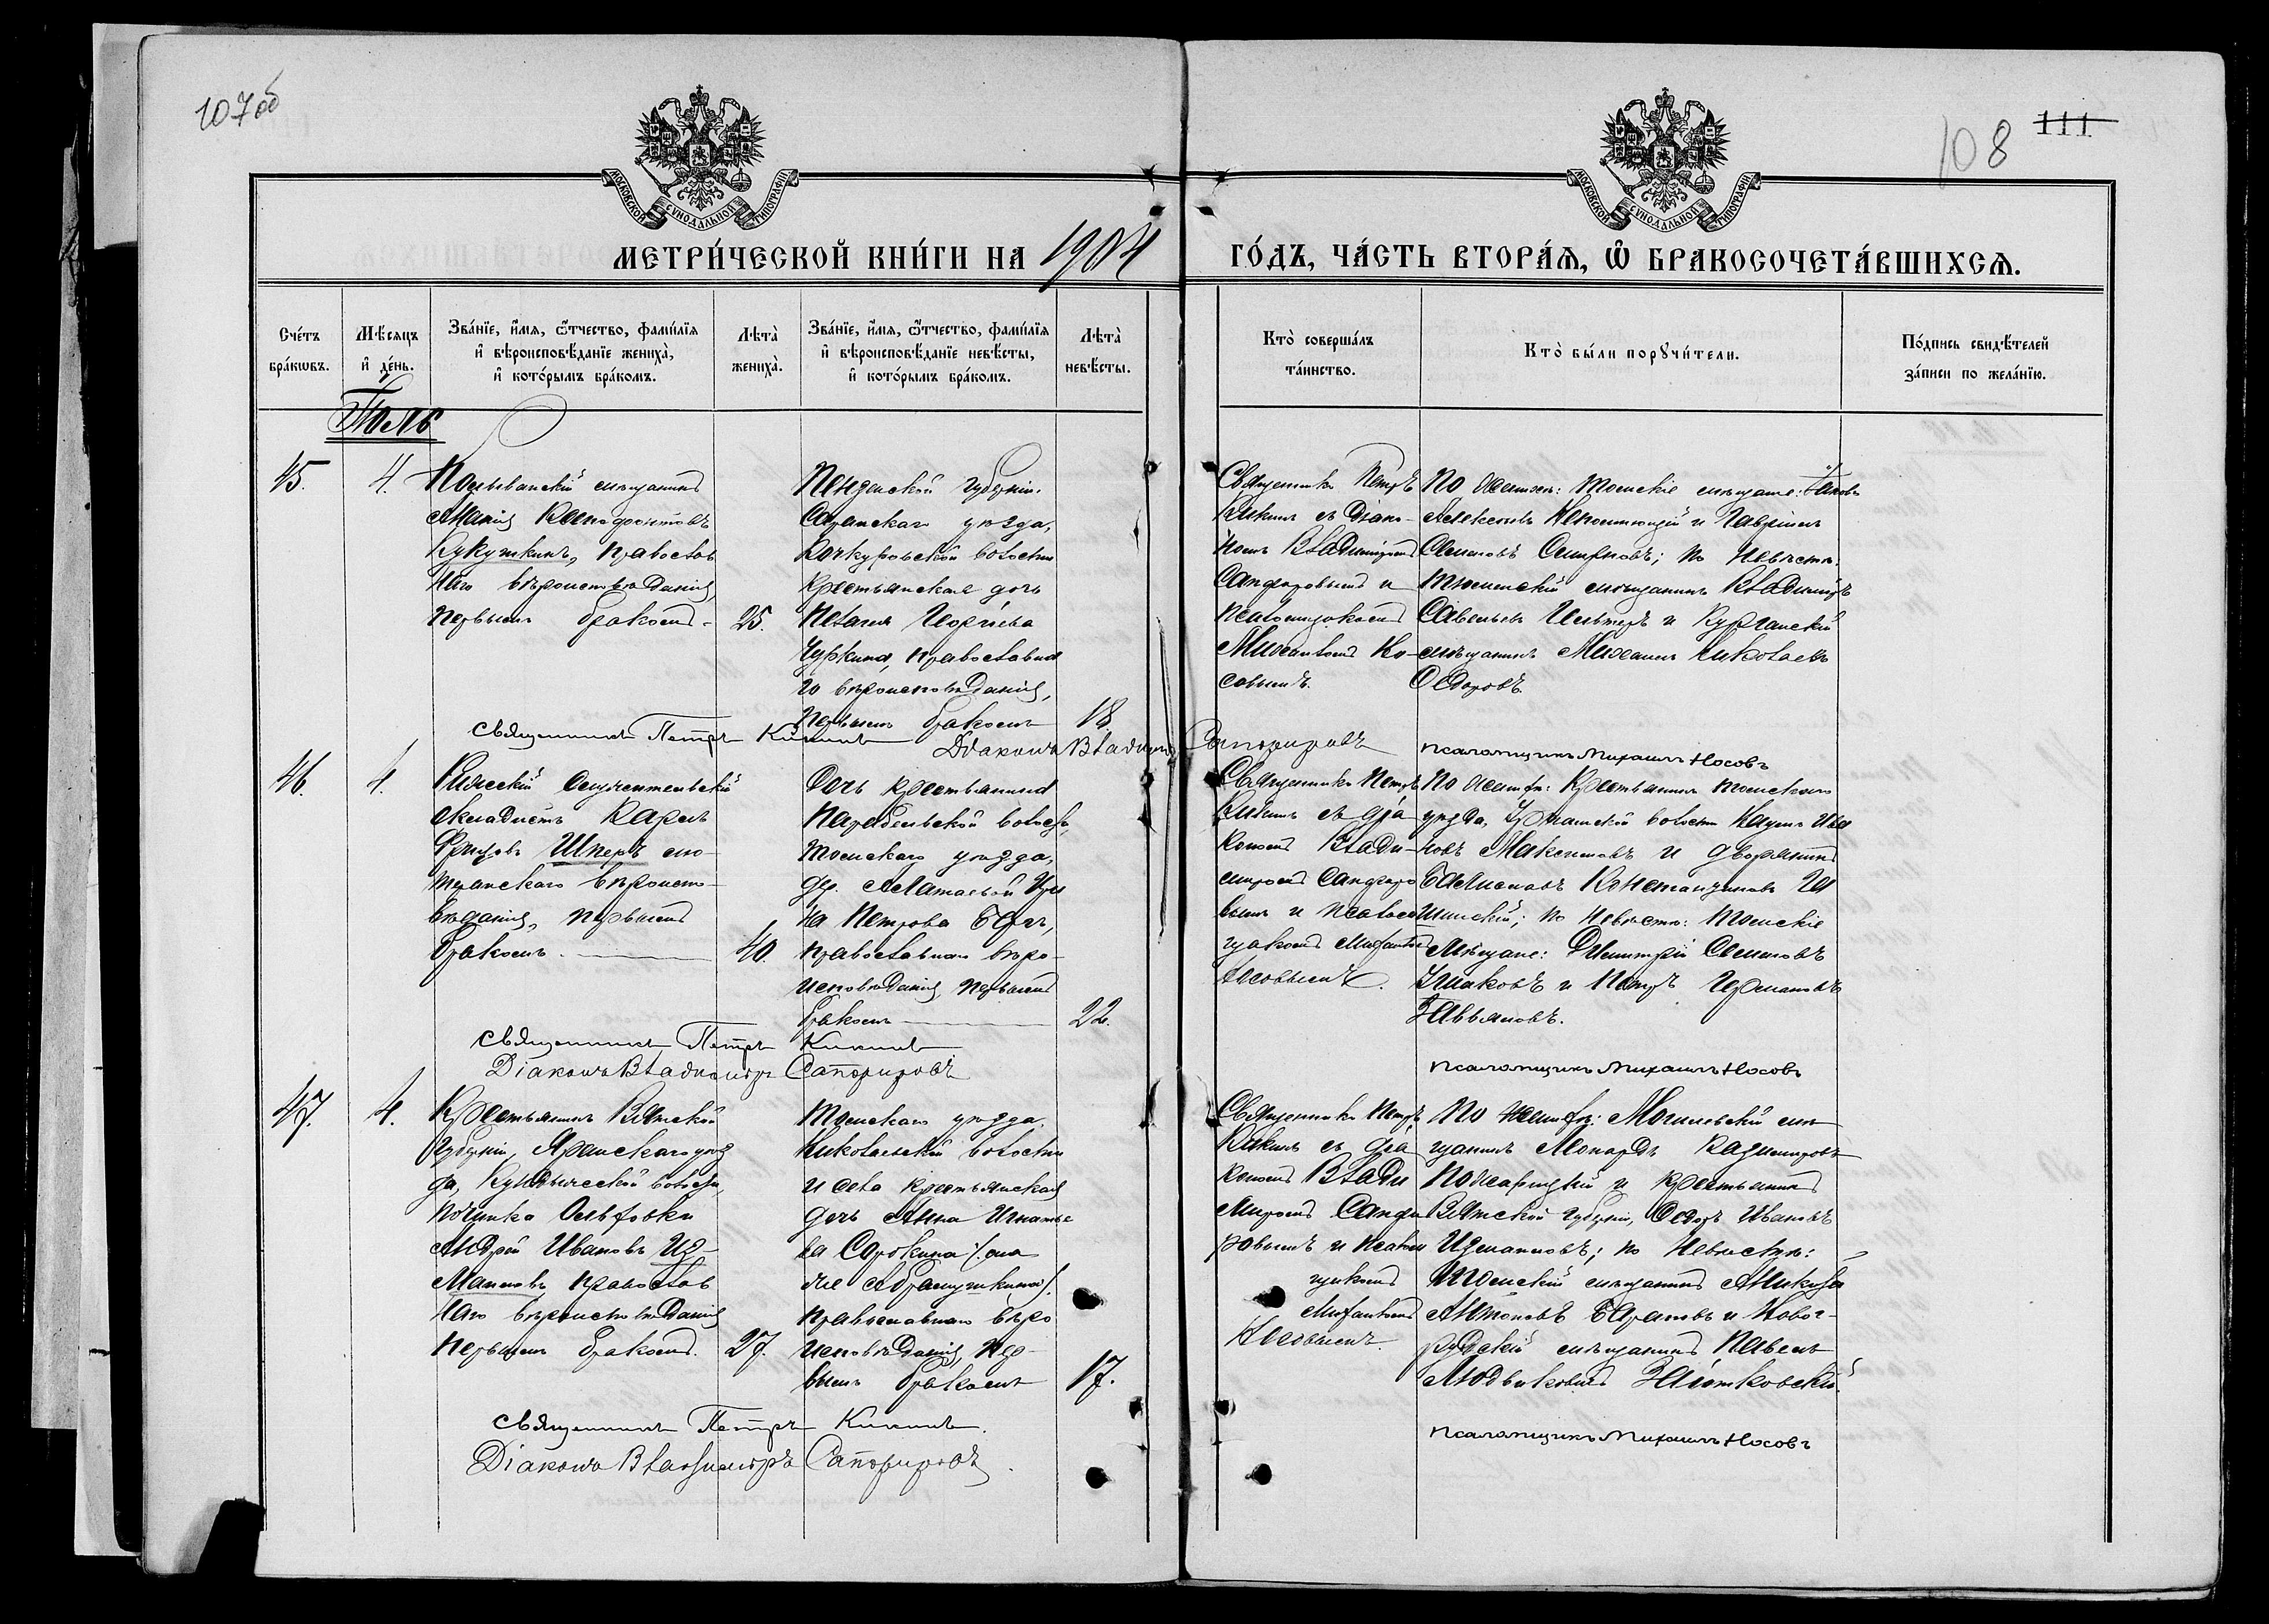 107об
108
111.
МОСКОВСКОЙ СѴНОДАЛЬНОЙ ТИПОГРАФІИ
МОСКОВСКОЙ СѴНОДАЛЬНОЙ ТИПОГРАФІИ
МЕТРИ́ЧЕСКОЙ КНИ́ГИ НА 1904
ГО́ДЪ, ЧА́СТЬ ВТОРА́Ѧ, Ѡ҆ БРАКОСОЧЕТА́ВШИХСѦ.
Сче́тъ бра́кѡвъ.
Мѣ́сяцъ и҆ де́нь.
Зва́нїе, и҆́мѧ, ѻ҆́тчество, фами́лїѧ
и҆ вѣроисповѣ́данїе жениха̀,
и҆ кото́рымъ бра́комъ.
Лѣта̀ жениха̀.
Зва́нїе, и҆́мѧ, ѻ҆́тчество, фами́лїѧ
и҆ вѣроисповѣ́данїе невѣ́сты,
и҆ кото́рымъ бра́комъ.
Лѣта̀ невѣ́сты.
Кто̀ соверша́лъ
та́инство.
Кто̀ бы́ли порꙋчи́тели.
По́дпись свидѣ́телей
за́писи по жела́нїю.
Іюль
45.
4.
Колыванскій мѣщанинъ
Ксенофонтовъ
Кукушкинъ, православ
наго вѣроисповѣданія,
первымъ бракомъ.
25.
Пензенской губерніи
Саранскаго уѣзда,
Кочкуровской волости
крестьянская дочь
Пелагія Георгіева
Чуркина, православна
го вѣроисповѣданія,
первымъ бракомъ
18
Священникъ Петръ
Кикинъ съ Діако-
номъ Владиміромъ
Сапфировымъ и
псаломщикомъ
Михаиломъ Но-
совымъ.
По женихѣ: томскіе мѣщане: Яковъ
Алексѣевъ и Гавріилъ
Семеновъ Смирновъ; по невѣстѣ:
мѣщанинъ Владиміръ
Савельевъ и Курганскій
мѣщанинъ Михаилъ Николаевъ
Ѳедоровъ.
Священникъ Петръ Кикинъ
Діаконъ Владиміръ Сапфировъ
псаломщикъ Михаилъ Носовъ
46.
4.
Рижскій
окладистъ Карлъ
Фрицовъ Шперъ лю-
теранскаго вѣроиспо-
вѣданія, первымъ
бракомъ.
40.
Дочь крестьянина
Парабельской волости,
Томскаго уѣзда,
дер. Ири
на Петрова
православнаго вѣро-
исповѣданія, первымъ
бракомъ
22.
Священникъ Петръ
Кикинъ съ Діа
кономъ Влади-
міромъ Сапфиро
вымъ и псаломщ
икомъ Михаиломъ
Носовымъ.
По женихѣ: Крестьянинъ томскаго
уѣзда, волости Ива
новъ Максимовъ и дворянинъ
Константиновъ
по невѣстѣ: томскіе
мѣщане: Димитрій Семеновъ
Ушаковъ и Петръ Германовъ
Завьяловъ.
Священникъ Петръ Кикинъ
Діаконъ Владиміръ Сапфировъ
псаломщикъ Михаилъ Носовъ
47.
4.
Крестьянинъ Вятской
губерніи, Яранскаго уѣз
да, волости,
починка Ольховки
Андрей Ивановъ Из-
мановъ, православ
наго вѣроисповѣданія
первымъ бракомъ.
27.
Томскаго уѣзда,
Николаевской волости
и села крестьянская
дочь Анна Игнатье
ва Сорокина /она
же Абрамушкина/.
православнаго вѣро
исповѣданія, пер-
вымъ бракомъ
17.
Священникъ Петръ
Кикинъ съ діа
кономъ Влади
міромъ Сапфи
ровымъ и псалом
щикомъ
Михаиломъ
Носовымъ.
По женихѣ: Могилевскій мѣ
щанинъ Казимировъ
и крестьянинъ
Вятской губерніи, Ѳедоръ Ивановъ
Измановъ; по невѣстѣ:
Томскій мѣщанинъ
Антоновъ Барановъ и Новог-
рудскій мѣщанинъ Павелъ
Людвиковъ
Священникъ Петръ Кикинъ.
Діаконъ Владиміръ Сапфировъ.
псаломщикъ Михаилъ Носовъ